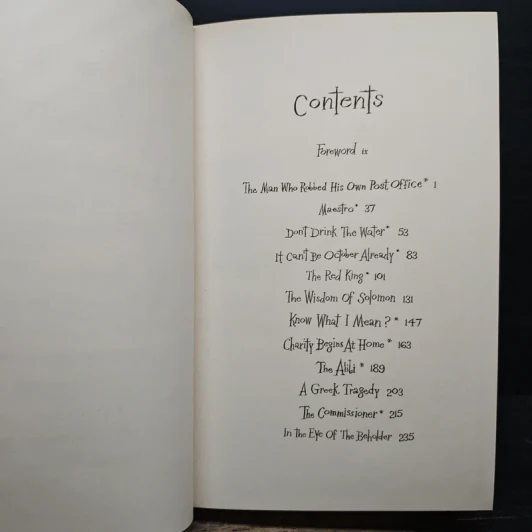 Contents
Foreword ix
The Man Who Robbed His Own Post Office* 1
Maestro* 37
Don't Drink The Water* 53
It Can't Be October Already* 83
The Red King* 101
The Wisdom Of Solomon 131
Know What I Mean?* 147
Charity Begins At Home* 163
The Alibi* 189
A Greek Tragedy 203
The Commissioner* 215
In The Eye Of The Beholder 235